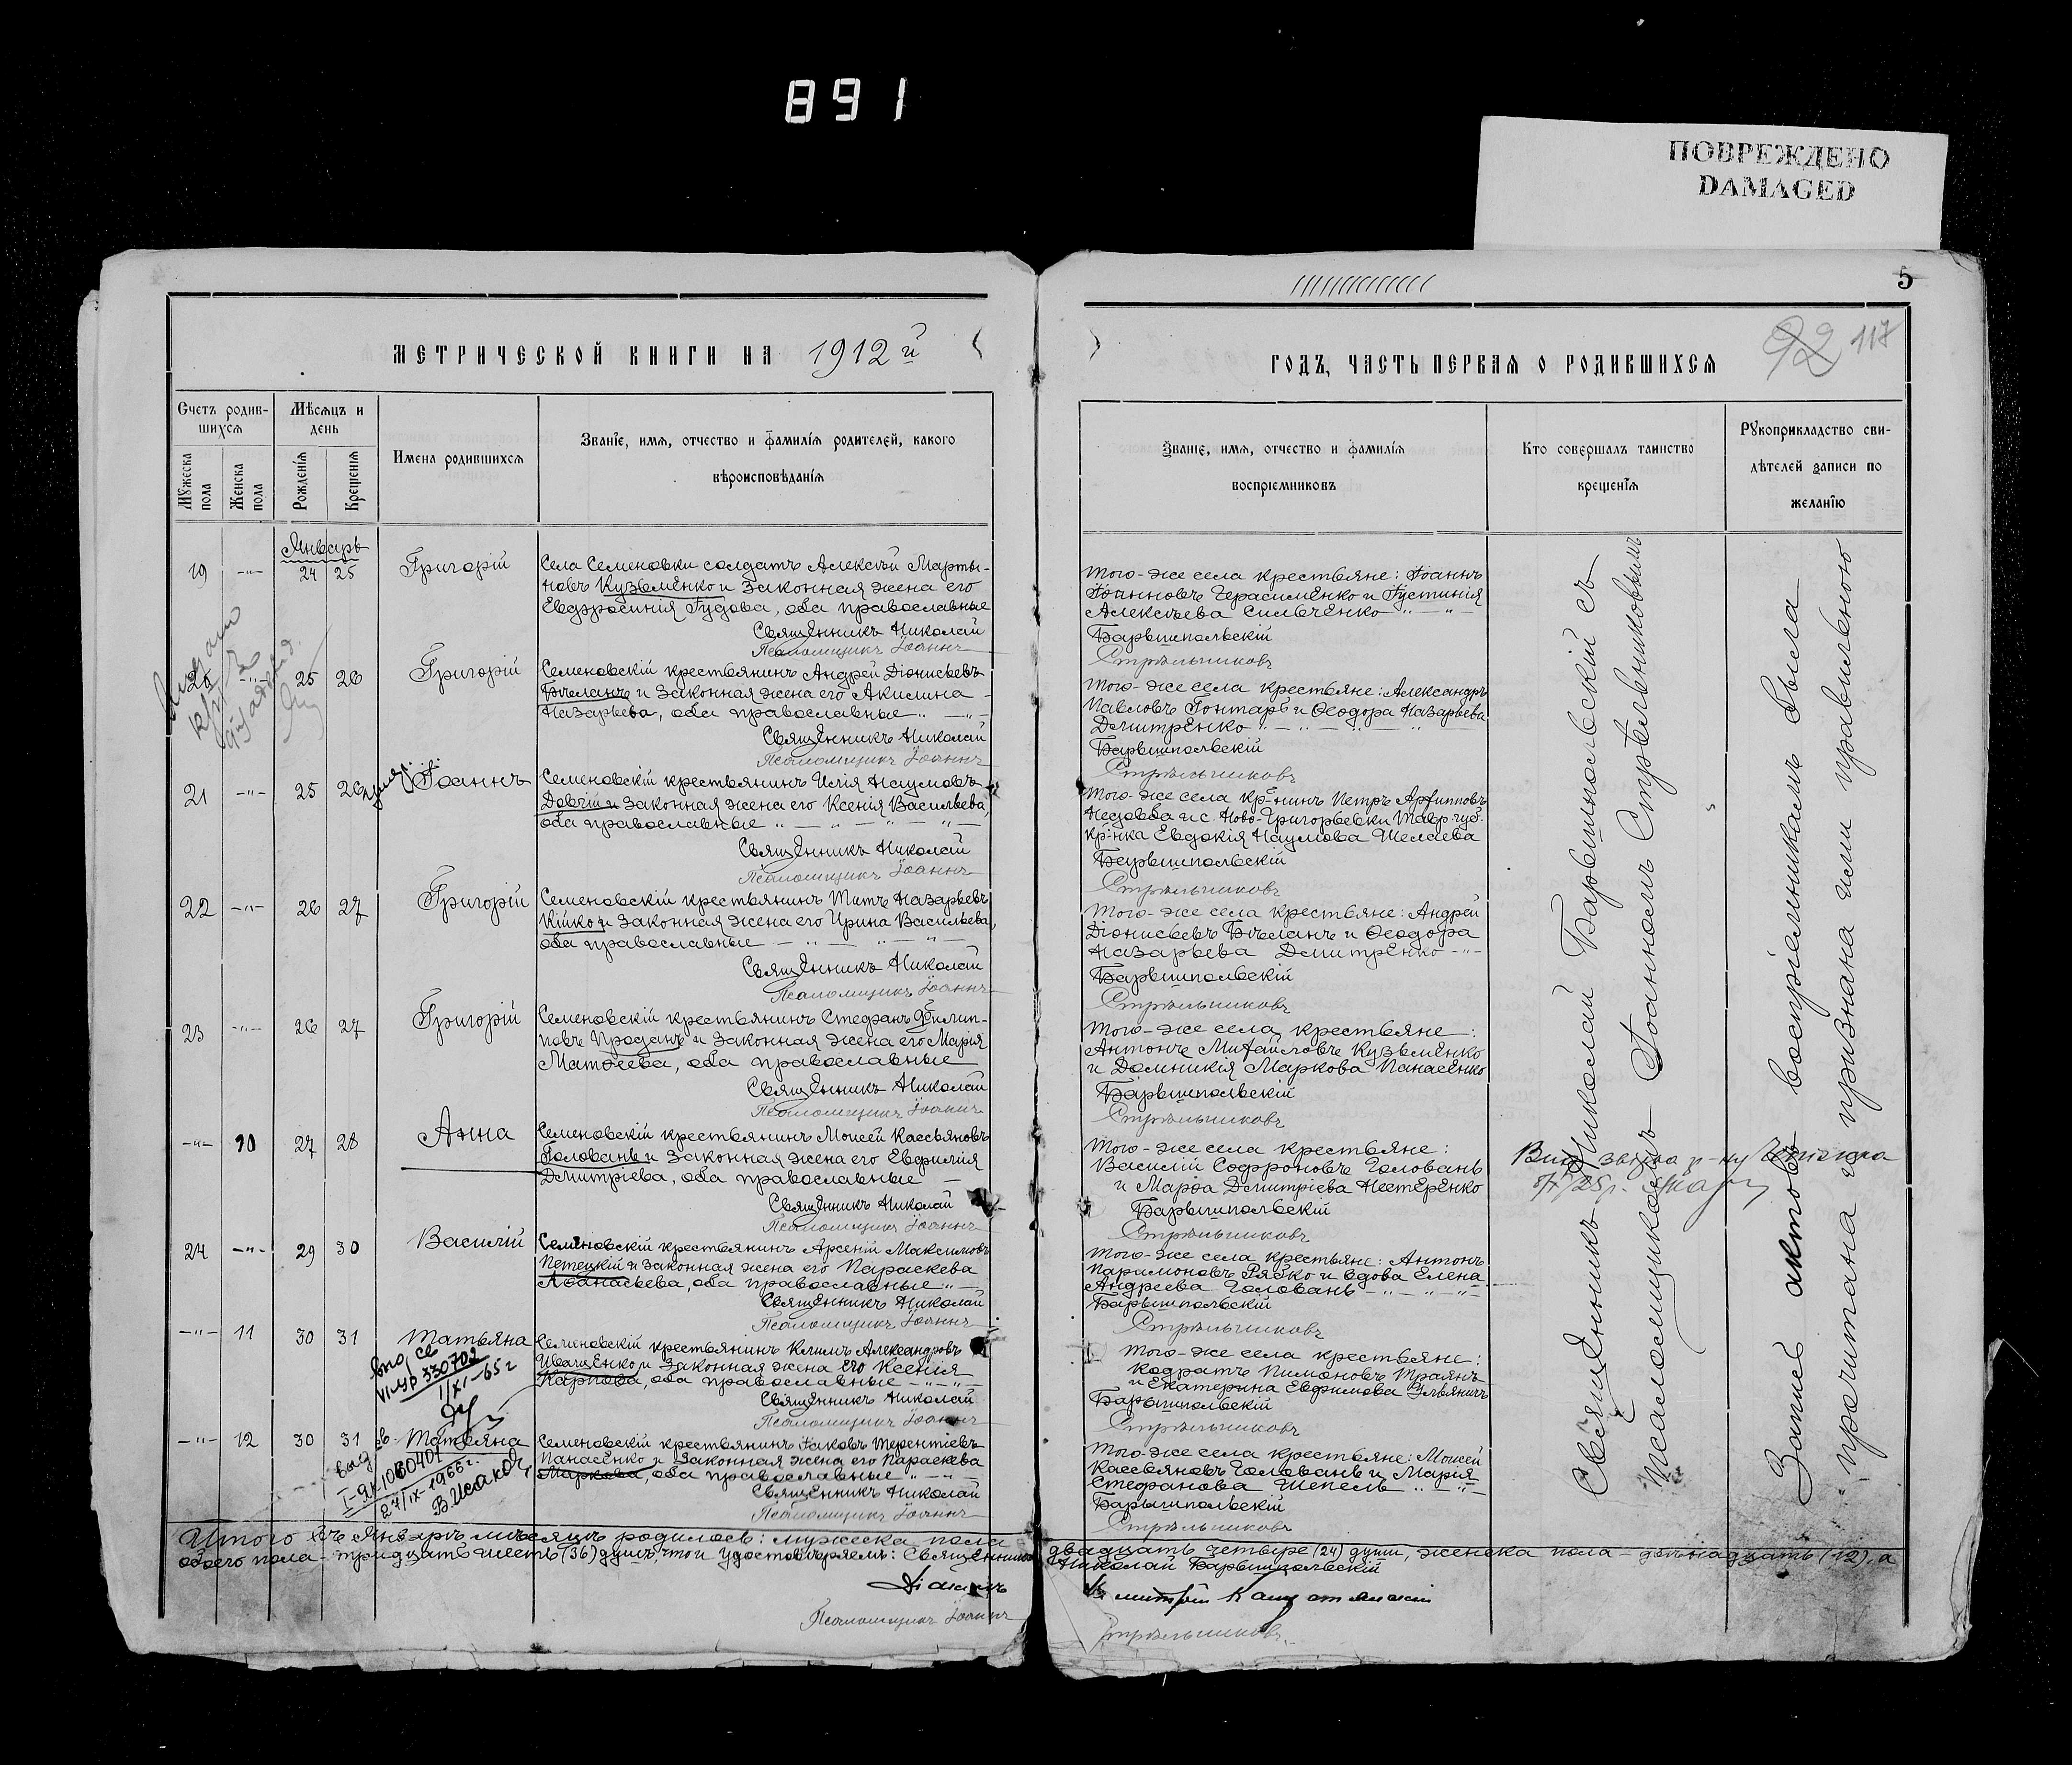 891
ПОВРЕЖДЕНО
DAMAGED
5
МЕТРИЧЕСКОЙ КНИГИ НА 1912 й
ГОДЪ, ЧАСТЬ ПЕРВАЯ О РОДИВШИХСЯ
92 117
Счетъ родив-
шихся
Мѣсяцъ и
день
Мужеска
пола
Женска
пола
Рожденія
Крещенія
Имена родившихся
Званіе, имя, отчество и фамилія родителей, какого
вѣроисповѣданія
Званіе, имя, отчество и фамилія
воспріемниковъ
Кто совершалъ таинство
крещенія
Рукоприкладство сви-
дѣтелей записи по
желанію
Январь
19 -"- 24 25 Григорій
Села Семеновки солдатъ Алексѣй Марты-
новъ Кузьменко и законная жена его
Евдфросинія Гудова, оба православные
Священникъ Николай
Псаломщикъ Іоаннъ
Того-же села крестьяне: Іоаннъ
Іоанновъ Герасименко и Іустинія
Алексѣева Сильченко
Барышпольскій
Стрѣльниковъ
20 -"- 25 26 Григорій
Семеновскій крестьянинъ Андрей Діонисьевъ
Бѣланъ и законная жена его Акилина
Назарьева, оба православные
Священникъ Николай
Псаломщикъ Іоаннъ
Того-же села крестьяне: Александръ
Павловъ Гонтарь и Ѳеодора Назарьева
Дмитренко
Барышпольскій
Стрѣльниковъ
21 -"- 25 26 Іоаннъ
Семеновскій крестьянинъ Илія Наумовъ
Довгій и законная жена его Ксенія Васильева,
оба православные
Священникъ Николай
Псаломщикъ Іоаннъ
Того-же села кр-нинъ Петръ Архипповъ
Недовба и с. Ново-Григорьевки Тавр. губ.
кр-нка Евдокія Наумова Шелаева
Барышпольскій
Стрѣльниковъ
22 -"- 26 27 Григорій
Семеновскій крестьянинъ Титъ Назарьевъ
Кійко и законная жена его Ирина Васильева,
оба православные
Священникъ Николай
Псаломщикъ Іоаннъ
Того-же села крестьяне: Андрей
Діонисьевъ Бѣланъ и Ѳеодора
Назарьева Дмитренко
Барышпольскій
Стрѣльниковъ
23 -"- 26 27 Григорій
Семеновскій крестьянинъ Стефанъ Филип-
повъ Проданъ и законная жена его Марія
Матѳеева, оба православные
Священникъ Николай
Псаломщикъ Іоаннъ
Того-же села крестьяне:
Антонъ Михайловъ Кузьменко
и Домникія Маркова Панасенко
Барышпольскій
Стрѣльниковъ
-"- 10 27 28 Анна
Семеновскій крестьянинъ Моисей Кассьяновъ
Головань и законная жена его Евфимія
Дмитріева, оба православные
Священникъ Николай
Псаломщикъ Іоаннъ
Того-же села крестьяне:
Василій Софроновъ Головань
и Марѳа Дмитріева Нестеренко
Барышпольскій
Стрѣльниковъ
24 -"- 29 30 Василій
Семеновскій крестьянинъ Арсеній Максимовъ
Петецкій и законная жена его Параскева
Аѳанасьева, оба православные
Священникъ Николай
Псаломщикъ Іоаннъ
Того-же села крестьяне: Антонъ
Парамоновъ Рябко и вдова Елена
Андреева Головань
Барышпольскій
Стрѣльниковъ
-"- 11 30 31 Татьяна
Семеновскій крестьянинъ Климъ Александровъ
Иващенко и законная жена его Ксенія
Карпова, оба православные
Священникъ Николай
Псаломщикъ Іоаннъ
Того-же села крестьяне:
Кодратъ Пимоновъ Траянъ
и Екатерина Евфимова Ульяничъ
Барышпольскій
Стрѣльниковъ
330702
1/XI-65 г
-"- 12 30 31 Татьяна
Семеновскій крестьянинъ Іаковъ Терентіевъ
Панасенко и законная жена его Параскева
Маркова, оба православные
Священникъ Николай
Псаломщикъ Іоаннъ
Того-же села крестьяне: Моисей
Кассьяновъ Головань и Марія
Стефанова Шепель
Барышпольскій
Стрѣльниковъ
27/IX-1966 г.
Священникъ Николай Барышпольскій съ
псаломщикомъ Іоанномъ Стрѣльниковымъ
Запись актовъ воспріемникамъ была
прочитана и признана ими правильною
Итого въ Январѣ мѣсяцѣ родилось: мужеска пола двадцать четыре (24) души, женска пола - двѣнадцать (12), а
обоего пола - тридцать шесть (36) душъ, что и удостовѣряемъ: Священникъ Николай Барышпольскій
Діаконъ
Псаломщикъ Іоаннъ Стрѣльниковъ